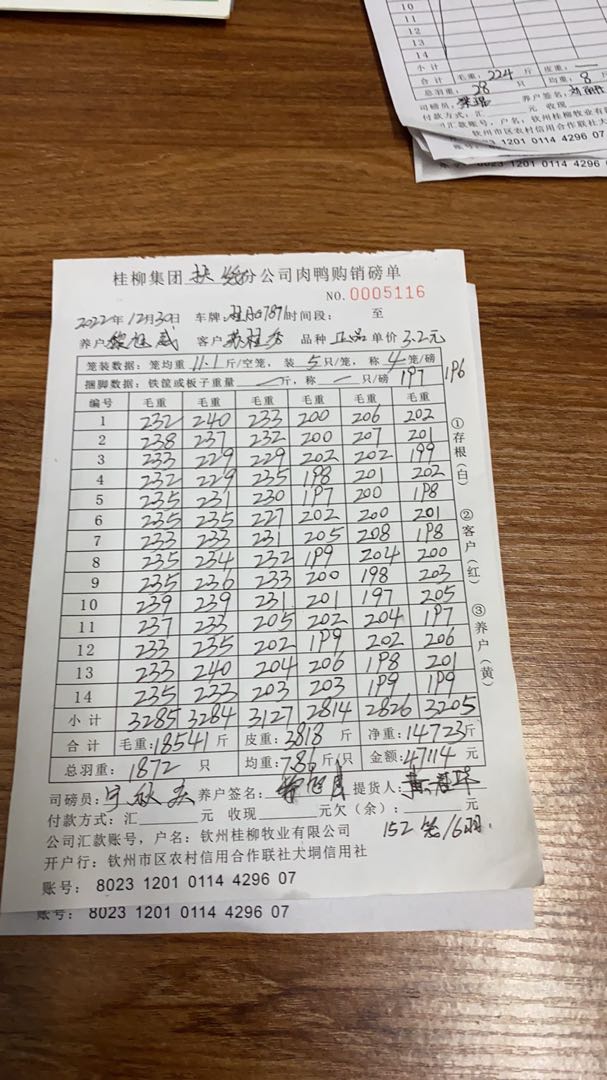 10
11
12
13
14
小 计
合 计 毛重: 224 斤 皮重: 一
总羽重: 28 只 均重: 8 斤
司磅员: 养户签名:
付款方式:汇 元 收现
汇款账号,户名:钦州桂柳牧业有限
钦州市区农村信用合作联社大
8023 1201 0114 4296 07
桂柳集团 分公司肉鸭购销磅单
NO. 0005116
2022年12月30日 车牌: 7871 时间段: 至
养户 客户 品种 正品 单价 3.2元
笼装数据:笼均重 11.1 斤/空笼,装 5 只/笼,称 4 笼/磅
捆脚数据:铁筐或板子重量 一 斤,称 一 只/磅 197 196
编号 毛重 毛重 毛重 毛重 毛重 毛重
1 232 240 233 200 206 202
2 238 237 232 200 207 201
3 233 229 229 202 202 199
4 232 229 235 198 201 202
5 235 231 230 197 200 198
6 235 235 227 202 200 201
7 233 233 231 205 208 198
8 235 234 232 199 204 200
9 235 236 233 200 198 203
10 239 239 231 201 197 205
11 237 233 205 202 204 197
12 233 235 202 199 202 206
13 233 240 204 206 198 201
14 235 233 203 203 199 199
小 计 3285 3284 3127 2814 2826 3205
合 计 毛重:18541 斤 皮重:3818 斤 净重:14723斤
总羽重:1872 只 均重:7.86 斤/只 金额:47114 元
司磅员: 养户签名: 提货人:
付款方式:汇 元 收现 元欠(余): 元
公司汇款账号,户名:钦州桂柳牧业有限公司 152笼/6羽.
开户行:钦州市区农村信用合作联社大垌信用社
账号: 8023 1201 0114 4296 07
账号: 8023 1201 0114 4296 07
①存根(白) ②客户(红) ③养户(黄)